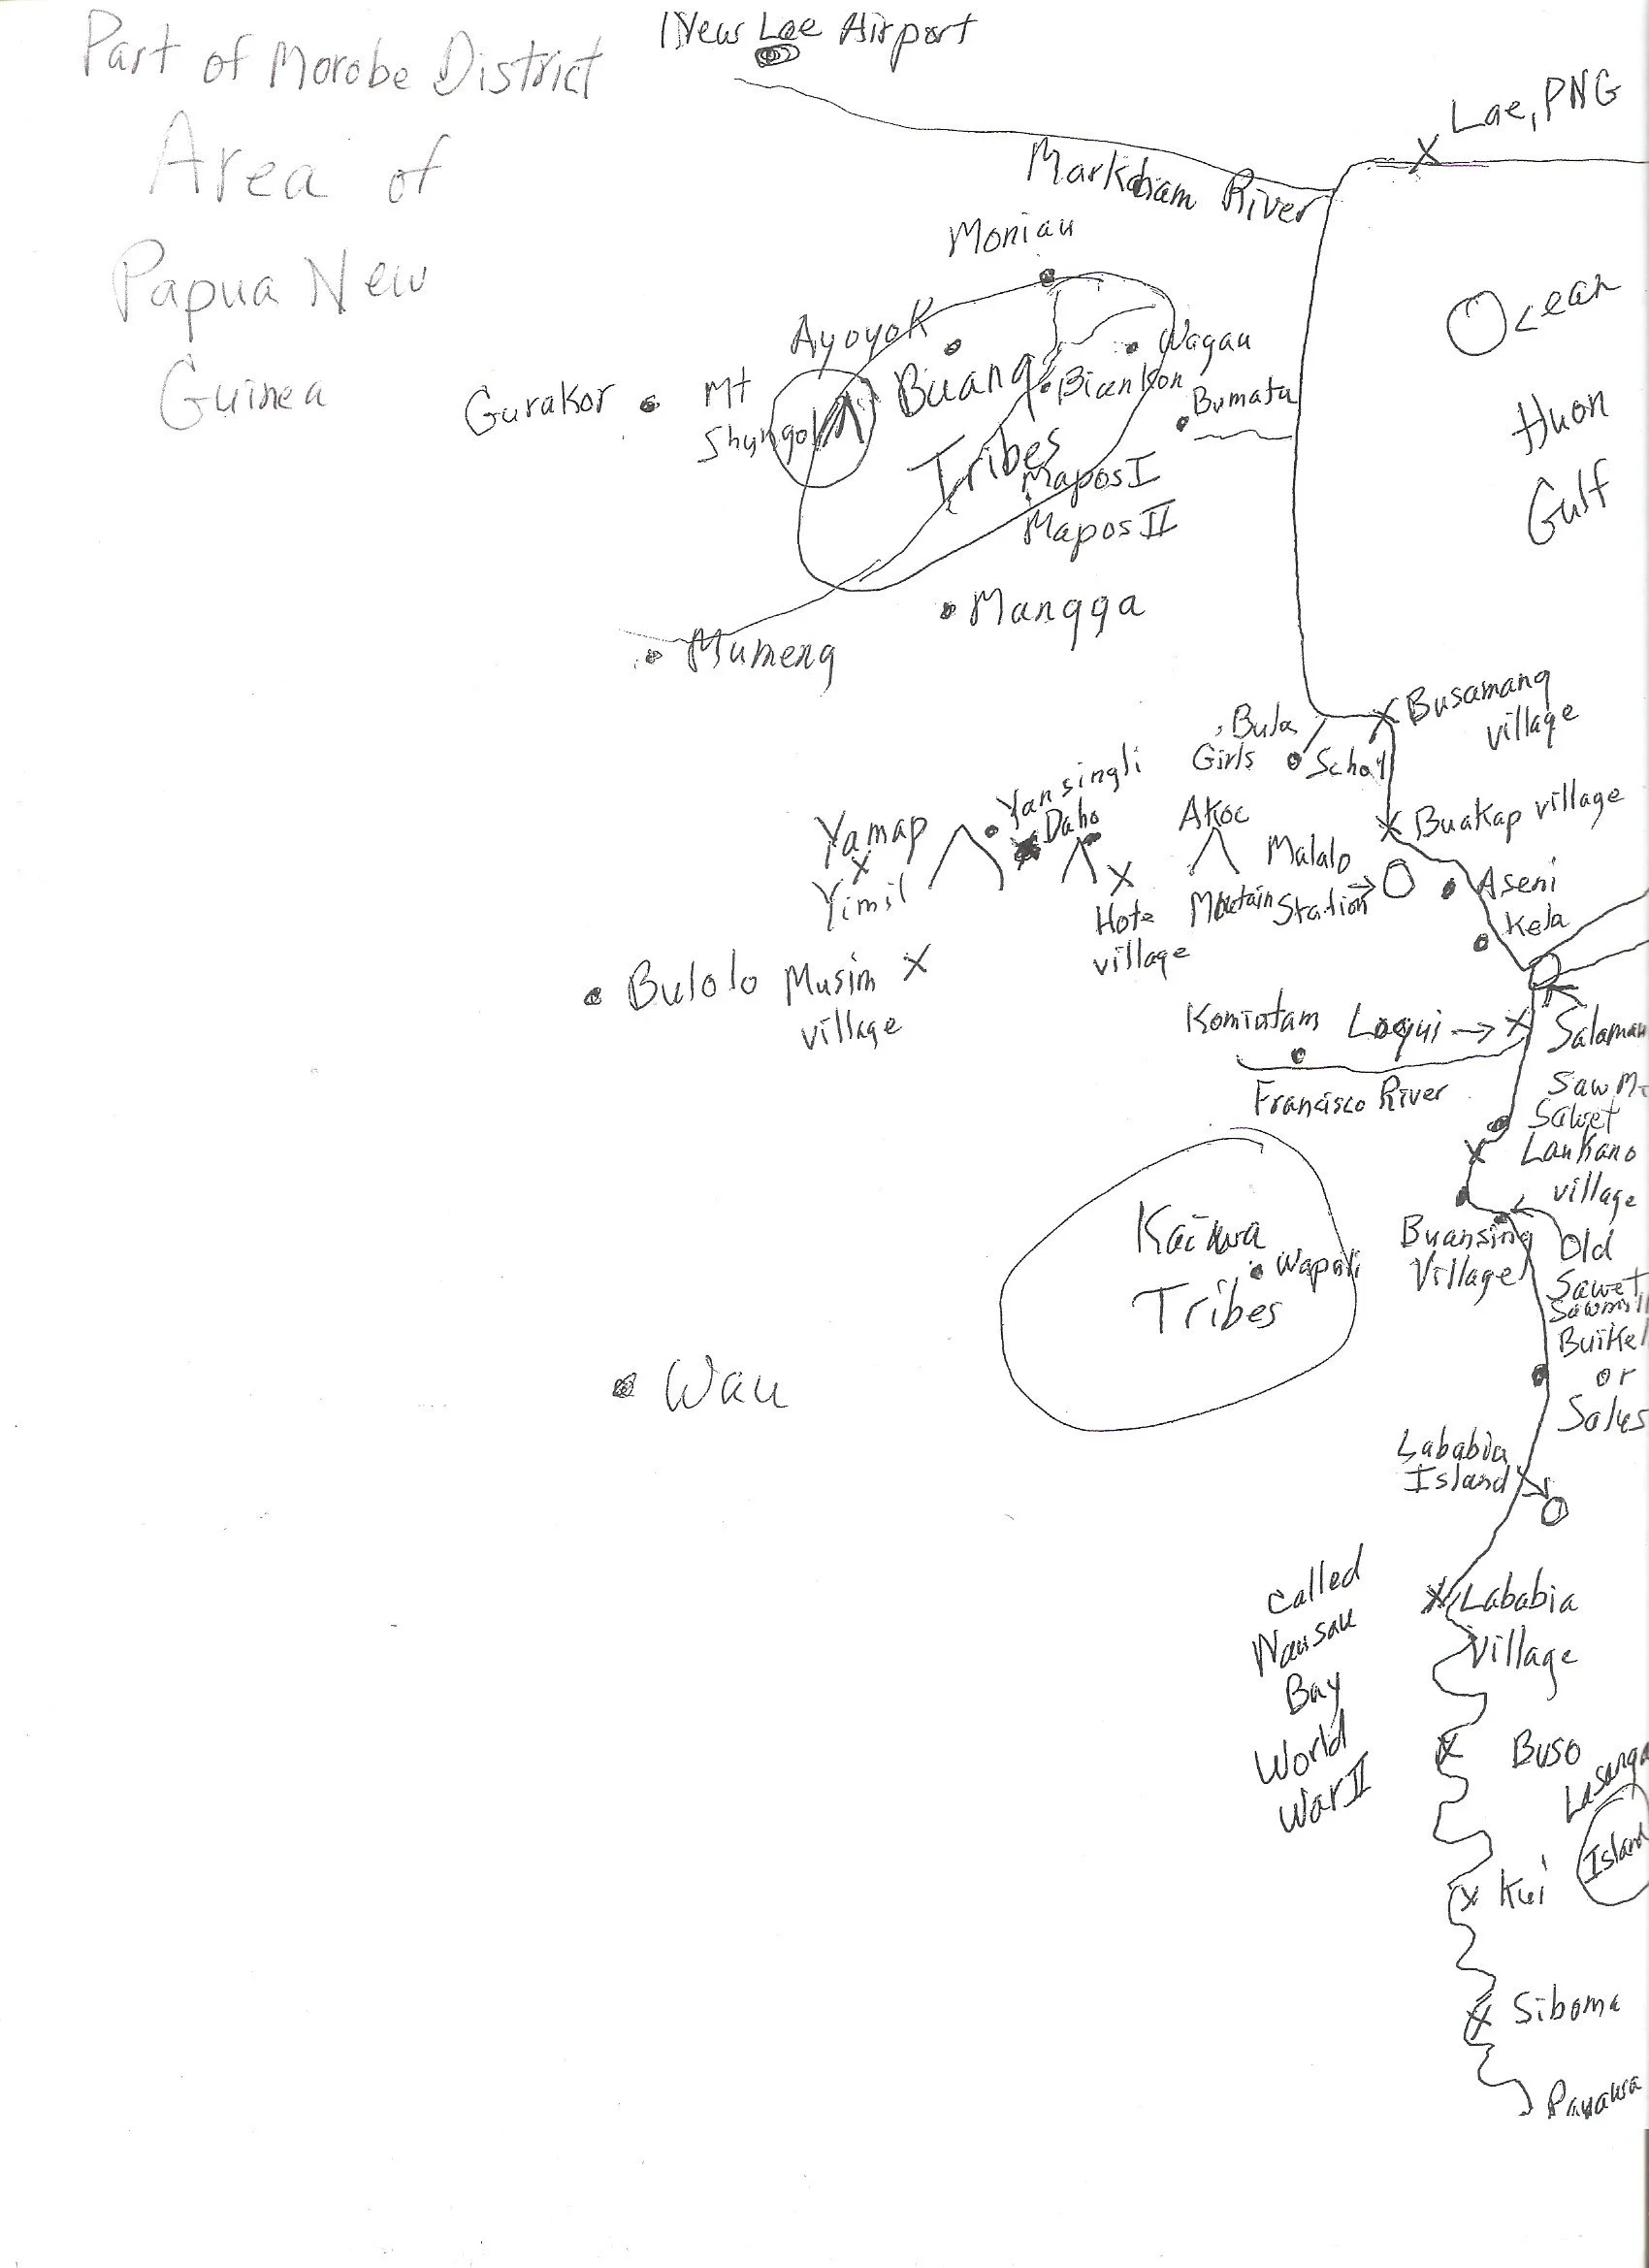 Part of Morobe District
Area of
Papua New
Guinea
New Lae Airport
Lae, PNG
Markham River
Moniau
Ocean
Huon
Gulf
Ayoyok
Wagau
Buang
Tribes
Biankon
Bumata
Gurakor
Mt
Shungol
Mapos I
Mapos II
Mangga
Mumeng
Busamang
village
Bula
Girls
School
Buakap village
Yansingli
Daho
Akoc
Mountain
Yamap
Yimil
Malalo
Station
Aseni
Kela
Hote
village
Bulolo
Musim
village
Komiatam
Logui
Salamau
Francisco River
Saw M
Sawet
Laukano
village
Kaiwa
Tribes
Wapali
Buansing
Village
Old
Sawet
Sawmill
Buikel
or
Salus
Wau
Lababia
Island
Lababia
Village
called
Nausau
Bay
World
War II
Buso
Lasanga
Island
Kui
Siboma